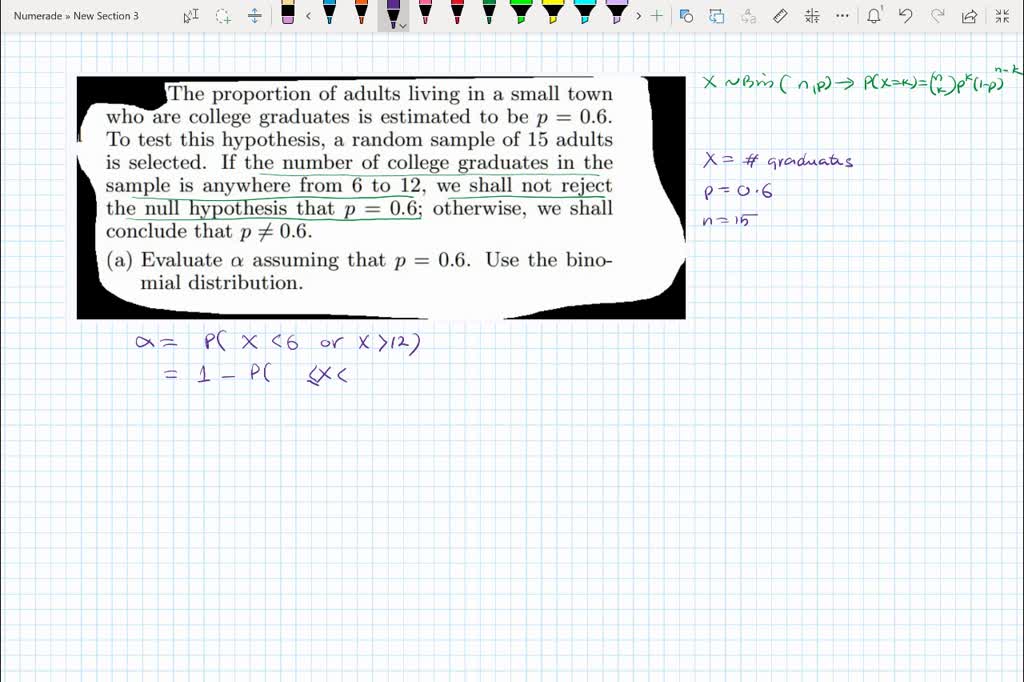 Numerade » New Section 3
X ~ Bin(n,p) → P(X=k) = (n k) p^k (1-p)^n-k
The proportion of adults living in a small town
who are college graduates is estimated to be p = 0.6.
To test this hypothesis, a random sample of 15 adults
is selected. If the number of college graduates in the
sample is anywhere from 6 to 12, we shall not reject
the null hypothesis that p = 0.6; otherwise, we shall
conclude that p ≠ 0.6.
(a) Evaluate α assuming that p = 0.6. Use the bino-
mial distribution.
X = # graduates
p = 0.6
n = 15
α = P( X < 6 or X > 12)
= 1 - P( ≤ X <